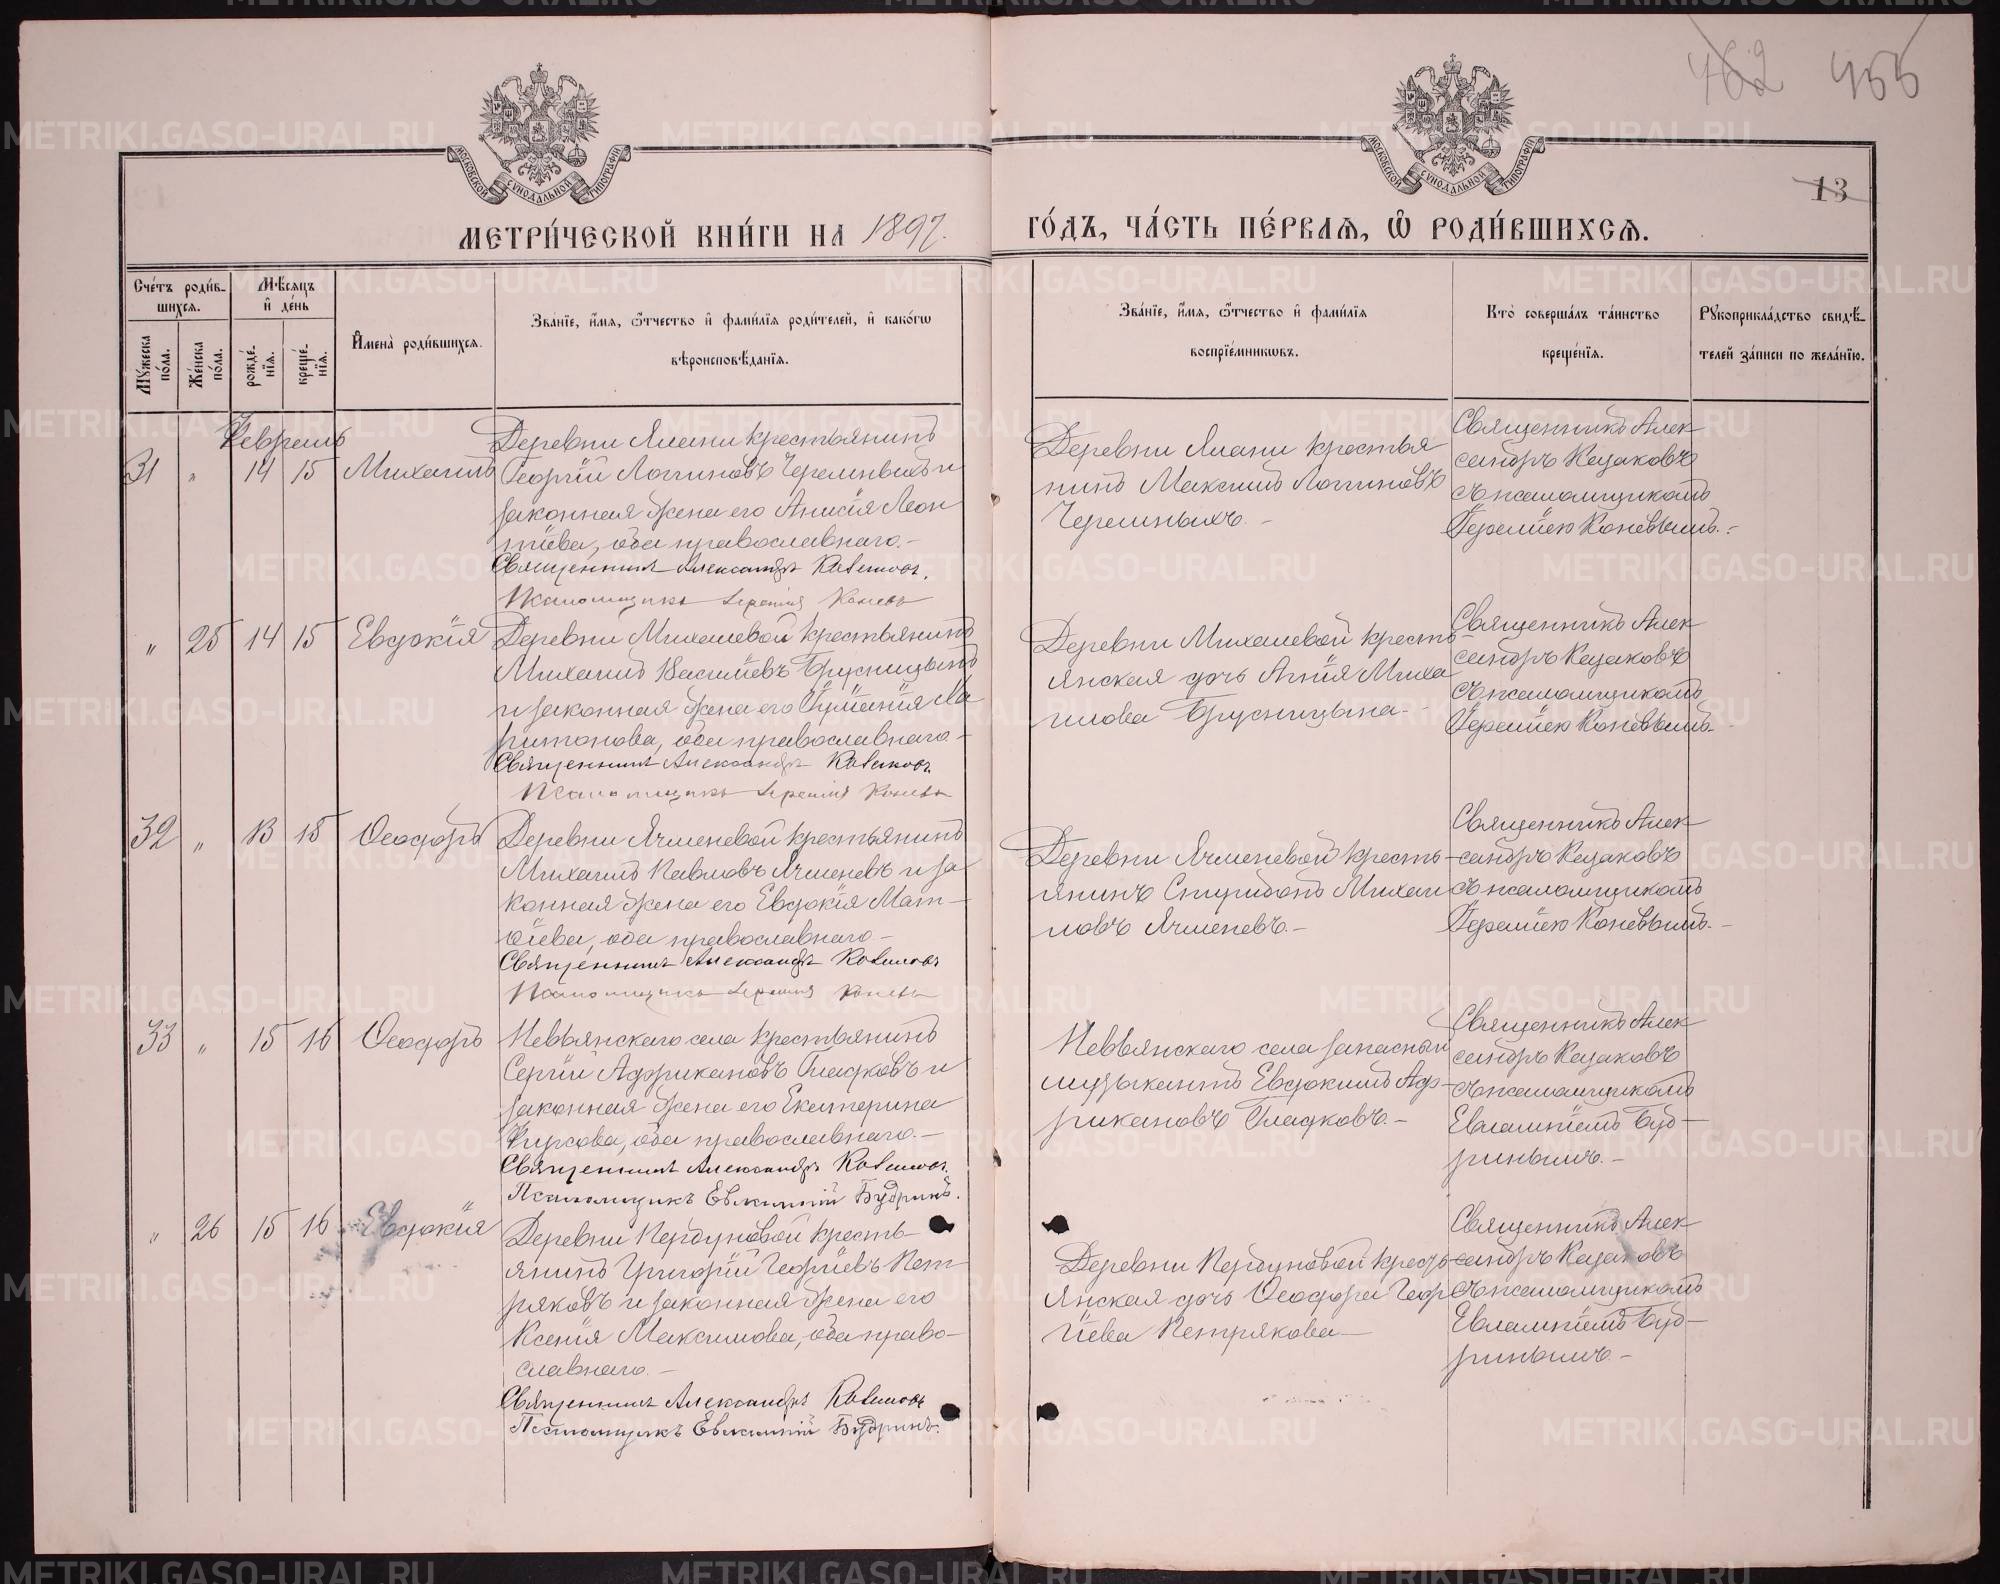 462 455
МОСКОВСКОЙ СѴНОДАЛЬНОЙ ТИПОГРАФІИ
МОСКОВСКОЙ СѴНОДАЛЬНОЙ ТИПОГРАФІИ
13
МЕТРИ́ЧЕСКОЙ КНИ́ГИ НА 1897. ГО́ДЪ, ЧА́СТЬ ПЕ́РВАѦ, Ѡ РОДИ́ВШИХСѦ.
Сче́тъ роди́в-
шихсѧ.
Мꙋ́жеска по́ла.
Же́нска по́ла.
Мѣ́сѧцъ и҆ де́нь
рожде́-
нїѧ.
креще́-
нїѧ.
И҆мена̀ роди́вшихсѧ.
Зва́нїе, и҆́мѧ, ѻ҆́тчество и҆ фами́лїѧ роди́телей, и҆ како́гѡ
вѣроисповѣ́данїѧ.
Зва́нїе, и҆́мѧ, ѻ҆́тчество и҆ фами́лїѧ
воспрїе́мникѡвъ.
Кто̀ соверша́лъ та́инство
креще́нїѧ.
Рꙋкоприкла́дство свидѣ́-
телей за́писи по жела́нїю.
Февраль
31 " 14 15 Михаилъ
Деревни Ялани крестьянинъ
Георгій Логиновъ Черемныхъ и
законная жена его Анисія Леон
тіева, оба православнаго.-
Священникъ Александръ Казаковъ.
Псаломщикъ Іеремія Коневъ
Деревни Ялани крестья
нинъ Максимъ Логиновъ
Черемныхъ. -
Священникъ Алек
сандръ Казаковъ
съ псаломщикомъ
Іереміею Коневымъ.-
" 25 14 15 Евдокія
Деревни Михалевой крестьянинъ
Михаилъ Васильевъ Брусницынъ
и законная жена его Ха
ритонова, оба православнаго.-
Священникъ Александръ Казаковъ.
Псаломщикъ Іеремія Коневъ
Деревни Михалевой кресть-
янская дочь Агнія Миха
илова Брусницына.-
Священникъ Алек
сандръ Казаковъ
съ псаломщикомъ
Іереміею Коневымъ.
32 " 13 15 Ѳеодоръ
Деревни Ячменевой крестьянинъ
Михаилъ Павловъ Ячменевъ и за
конная жена его Евдокія Мат-
ѳіева, оба православнаго-
Священникъ Александръ Казаковъ
Псаломщикъ Іеремія Коневъ
Деревни Ячменевой кресть-
янинъ Спиридонъ Михаи
ловъ Ячменевъ.-
Священникъ Алек
сандръ Казаковъ
съ псаломщикомъ
Іереміею Коневымъ.-
33 " 15 16 Ѳеодоръ
Невьянскаго села крестьянинъ
Сергій Африкановъ Гладковъ и
законная жена его Екатерина
Фирсова, оба православнаго.-
Священникъ Александръ Казаковъ.
Псаломщикъ Евлампій Будринъ.
Невьянскаго села запасный
музыкантъ Евдокимъ Аф-
рикановъ Гладковъ.-
Священникъ Алек
сандръ Казаковъ
съ псаломщикомъ
Евлампіемъ Буд-
ринымъ.-
" 26 15 16 Евдокія
Деревни Пердуновой кресть-
янинъ Григорій Георгіевъ Пет-
ряковъ и законная жена его
Ксенія Максимова, оба право-
славнаго.-
Священникъ Александръ Казаковъ
Псаломщикъ Евлампій Будринъ.
Деревни Пердуновой кресть-
янская дочь Ѳеодора Геор
гіева Петрякова-
Священникъ Алек
сандръ Казаковъ
съ псаломщикомъ
Евлампіемъ Буд-
ринымъ.-
METRIKI.GASO-URAL.RU